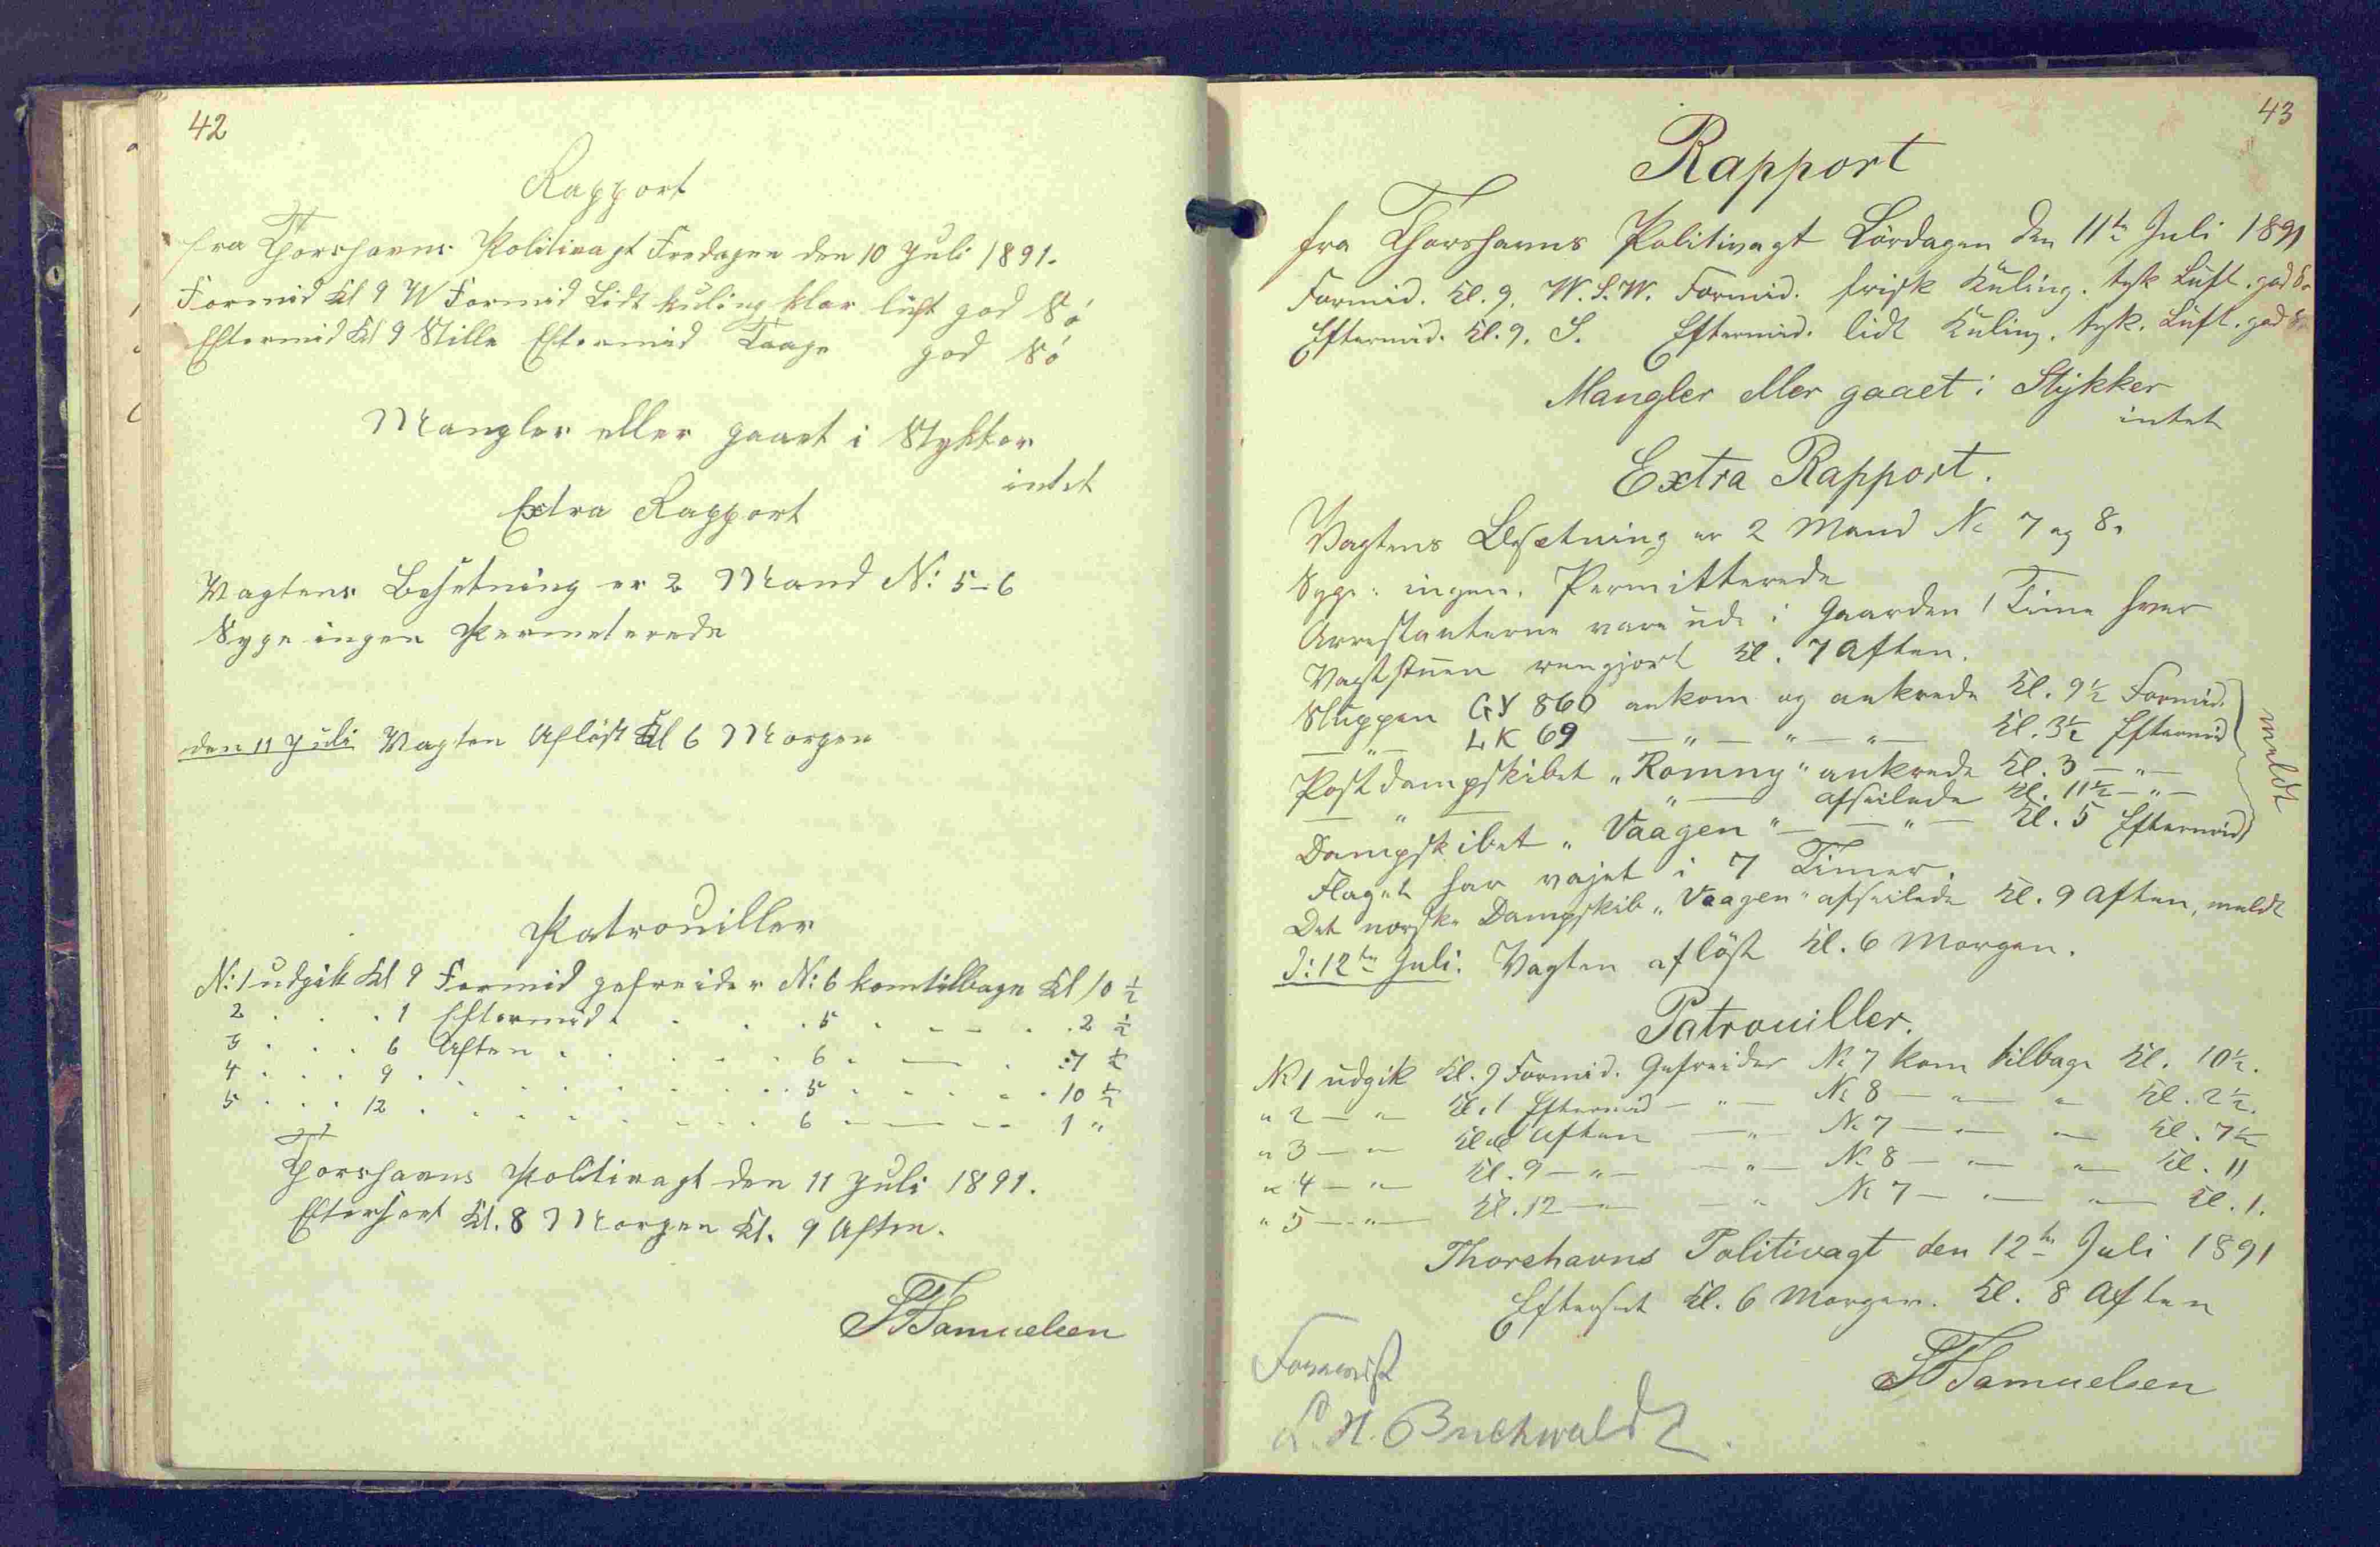 42
Rapport
fra Thorshavns Politivagt Fredagen den 10 Juli 1891.
Formid Kl 9 W Formid Lidt kuling klar luft god Sö
Eftermid Kl 9 Stille Eftermid Taage god Sö
Mangler eller gaaet i Stykker
intet
Extra Rapport
Vagtens Besetning er 2 Mand N: 5-6
Syge ingen Permeterede
den 11 Juli Vagten Aflöst Kl 6 Morgen
Patrouiller
N: 1 udgik Kl 9 Formid gefreider N: 6 kom tilbage Kl 10 ½
2 . . . 1 Eftermid . . . . 5 . . . . 2 ½
3 . . . 6 Aften . . . . 6 . — . 7 ½
4 . . . 9 . . . . . . 5 . . . . 10 ½
5 . . . 12 . . . . . . 6 — — 1 "
Thorshavns Politivagt den 11 Juli 1891.
Efterseet Kl. 8 Morgen Kl. 9 Aften.
Samuelsen
43
Rapport
fra Thorshavns Politivagt Lördagen den 11te Juli 1891
Formid. Kl. 9. W.S.W. Formid. frisk Kuling. tyk Luft. god Sö
Eftermid. Kl. 9. S. Eftermid. lidt Kuling. tyk. Luft. god Sö
Mangler eller gaaet i Stykker
intet
Extra Rapport.
Vagtens Besetning er 2 Mand No 7 og 8.
Syge: ingen. Permitterede
Arrestanterne vare ude i Gaarden 1 Time hver
Vagtstuen rengjort Kl. 7 Aften.
Sluppen GY 860 ankom og ankrede Kl. 9½ Formid.
— " — LK 69 — " — " — " — Kl. 3½ Eftermid
Postdampskibet "Romny" ankrede Kl. 3 — " —
— " — " — afseilede Kl. 11½ — " —
Dampskibet "Vaagen" — — " — Kl. 5 Eftermid
meldt
Flaget har vajet i 7 Timer.
Det norske Dampskib "Vaagen" afseilede Kl. 9 Aften, meldt
d: 12te Juli. Vagten aflöst Kl. 6 Morgen.
Patrouiller.
No 1 udgik Kl. 9 Formid. Gefreider No 7 kom tilbage Kl. 10½.
" 2 — " — Kl. 1 Eftermid — " — No 8 — " — " Kl. 2½.
" 3 — " — Kl. 6 Aften — " — No 7 — " — " — Kl. 7½
" 4 — " — Kl. 9 — " — — " — No 8 — " — " — Kl. 11
" 5 — " — Kl. 12 — " — — " No 7 — " — " — Kl. 1.
Thorshavns Politivagt den 12te Juli 1891
Efterset Kl. 6 Morgen. Kl. 8 Aften
Samuelsen
Forevist
L. H. Buchwaldt.